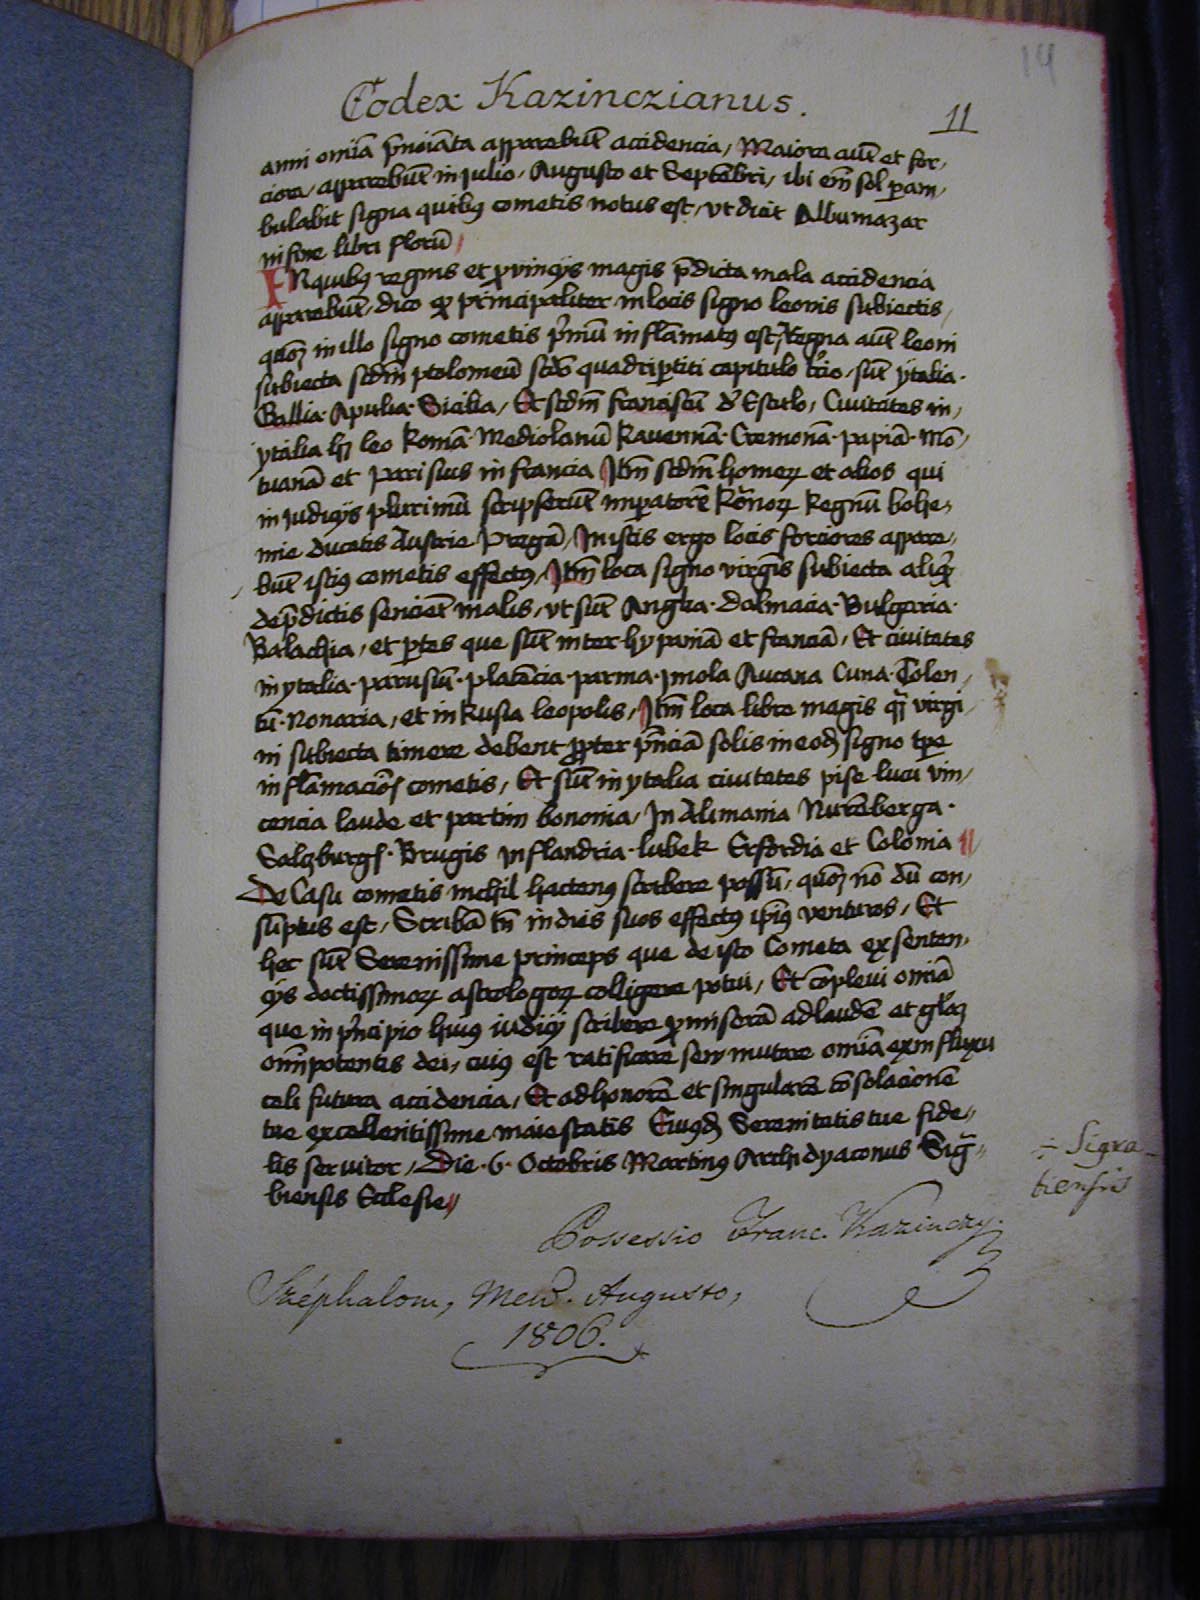 14
Codex Kazinczianus.
11
anni omiā p̄nciāta apparebūt accidencia, Maiora aūt et for,
ciora, apparebūt in Julio, Augusto et Septēbri, ibi em̄ sol peram,
bulabit signa quibus cometis notus est, vt dicit Albumazar
in fine libri florū
IN quibus regnis et prouincijs magis p̄dicta mala accidencia
apparebūt, dico qd principaliter in locis signo leonis subiectis,
quoꝫ in illo signo cometis primū inflāmatus est, Regna aūt leoni
subiecta scdm̄ ptolomeū scdo quadripartiti capitulo tercio, sūt ytalia.
Gallia. Apulia. Sicilia, Et scdm̄ franciscū de Esculo, Ciuitates in,
ytalia hꝫ leo Romā. Mediolanū Rauennā. Cremonā. papiā. Mō,
tuanā et parisius in francia Itm̄ scdm̄ homerꝝ et alios qui
in judicijs plurimū scripserūt imperatorē Romanorꝝ Regnū bohe,
mie ducatis Austrie pragā, In istis ergo locis forciores appare,
būt istius cometis effectus, Itm̄ loca signo virginis subiecta aliqd
de p̄dictis sencient malis, vt sūt Anglia. dalmacia. Bulgaria.
Balachia, et partes que sūt inter hyspaniā et franciā, Et ciuitates
in ytalia. parusiū. platēcia. parma. Imola Aucana Cuna. Tolen,
tū. Nonaria, et in Rusia leopolis, Itm̄ loca libre magis qꝫ virgi,
ni subiecta timere debent propter p̄nciā solis in eodꝫ signo tpe
inflāmaciōis cometis, Et sūt in ytalia ciuitates pise luca vin,
cencia laude et partim bononia, In Alimania Nurēberga.
Salczburgꝭ. Brugis in flandria. lubek Erfordia et Colonia
De Casu cometis nichil hactenus scribere possū, quoꝫ nō dū con,
sūptus est, Scribā tn̄ in dies suos effectus ipius venturos, Et
hec sūt Serenissime princeps que de isto Cometa ex senten,
cijs doctissimorꝝ astrologorꝝ colligere potui, Et cōpleui omiā
que in principio huius iudicij scribere promiserā ad laudē et gl'aꝫ
om̄ipotentis dei, cuius est ratificare seu mutare omiā ex influxu
celi futura accidencia, Et ad honorē et singularē cōsolacionē
tue excellentissime maiestatis Eiusdꝫ Serenitatis tue fide,
lis seruitor, Die. 6. Octobris Martinus Archidyaconus Sigꝛa,
biensis Ecclesie
÷ Sigra-
biensis
Possessio Franc. Kazinczy.
Széphalom, Men. Augusto,
1806.